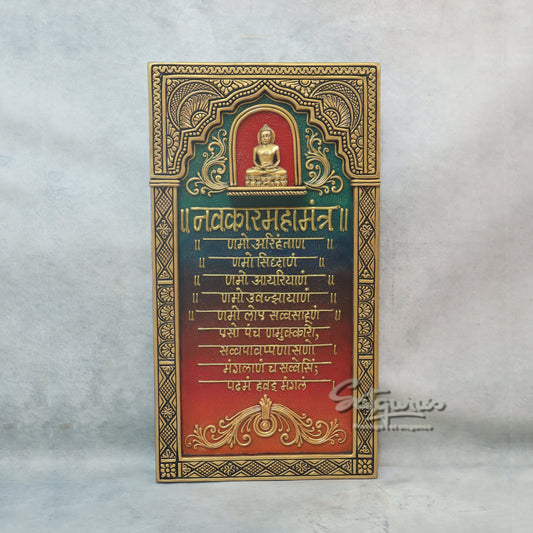 ॥ नवकारमहामंत्र ॥
॥ णमो अरिहंताण ॥
॥ णमो सिद्धाणं ॥
॥ णमो आयरियाणं ॥
॥ णमो उवज्झायाणं ॥
॥ णमो लोए सव्वसाहूणं ॥
एसो पंच णमुक्कारो,
सव्वपावप्पणासणो ।
मंगलाणं च सव्वेसिं;
पढमं हवइ मंगलं ।
Satguru's